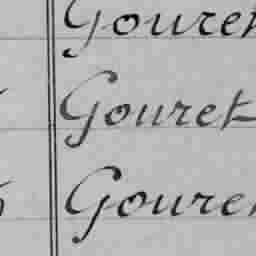 Gouret
Gouret
Gouret